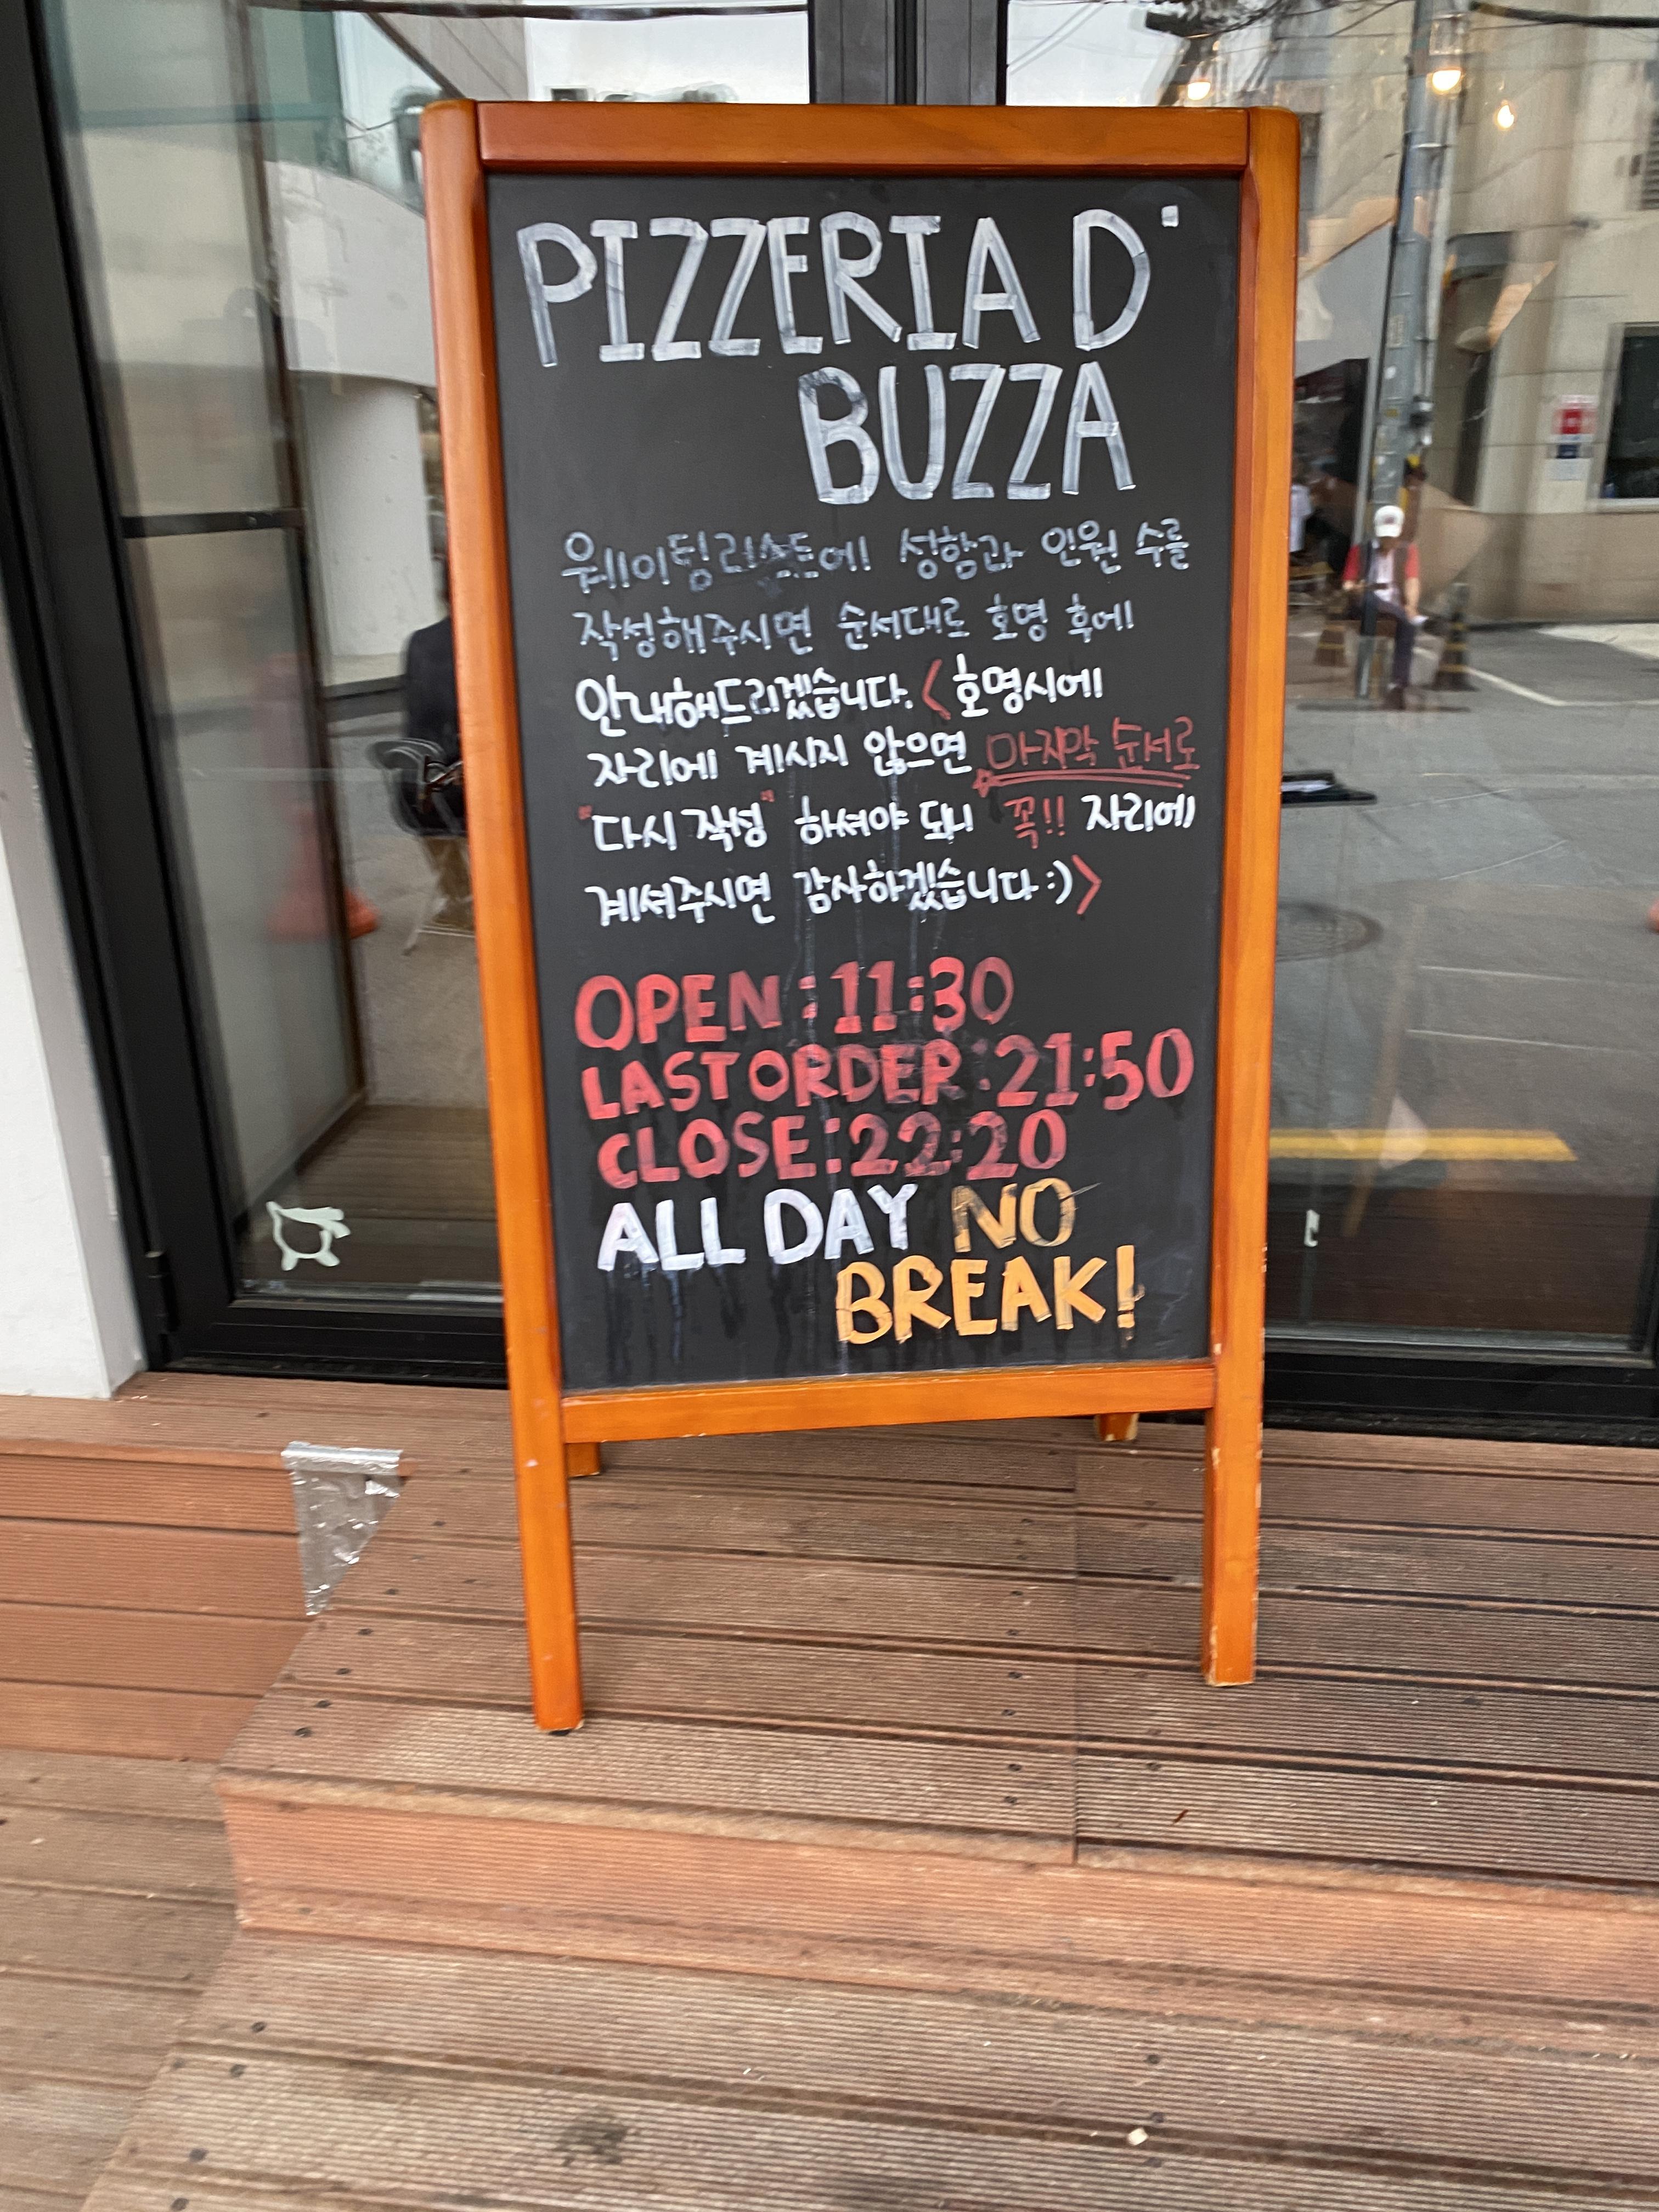 PIZZERIA D'
BUZZA
웨이팅리스트에 성함과 인원 수를
작성해주시면 순서대로 호명 후에
안내해드리겠습니다. < 호명시에
자리에 계시지 않으면 마지막 순서로
"다시 작성" 하셔야 되니 꼭!! 자리에
계셔주시면 감사하겠습니다 :) >
OPEN : 11:30
LAST ORDER : 21:50
CLOSE : 22:20
ALL DAY NO
BREAK!